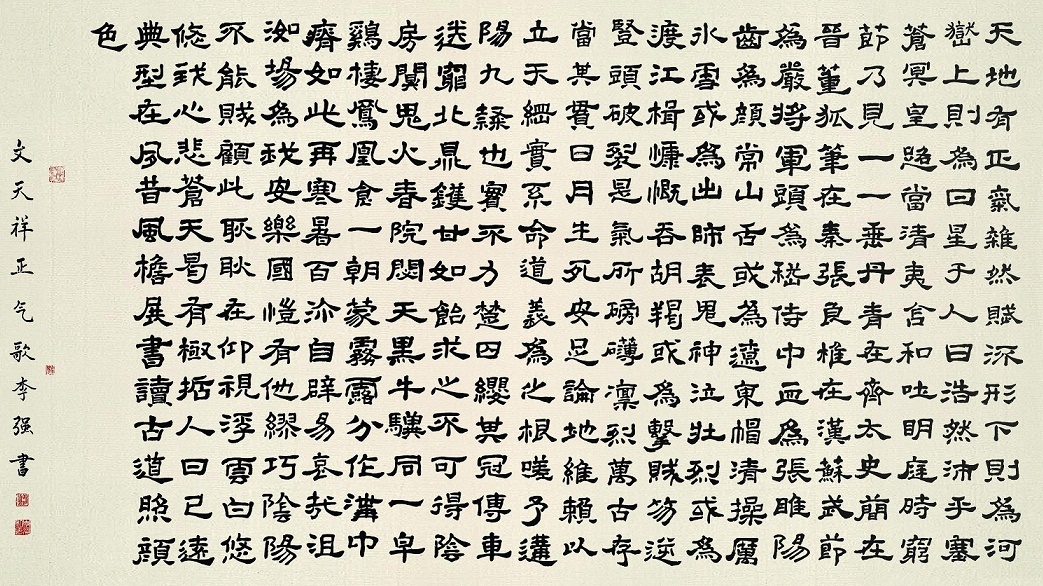 天地有正氣雜然賦流形下則為河
嶽上則為日星于人曰浩然沛乎塞
蒼冥皇路當清夷含和吐明庭時窮
節乃見一一垂丹青在齊太史簡在
晉董狐筆在秦張良椎在漢蘇武節
為嚴將軍頭為嵇侍中血為張睢陽
齒為顏常山舌或為遼東帽清操厲
冰雪或為出師表鬼神泣壯烈或為
渡江楫慷慨吞胡羯或為擊賊笏逆
豎頭破裂是氣所磅礴凜烈萬古存
當其貫日月生死安足論地維賴以
立天綱實系命道義為之根嗟予遘
陽九隸也實不力楚囚纓其冠傳車
送窮北鼎鑊甘如飴求之不可得陰
房闃鬼火春院閟天黑牛驥同一皁
鷄棲鳳凰食一朝蒙霧露分作溝中
瘠如此再寒暑百沴自辟易哀哉沮
洳場為我安樂國愷有他繆巧陰陽
不能賊顧此耿耿在仰視浮雲白悠
悠我心悲蒼天曷有極哲人日已遠
典型在夙昔風檐展書讀古道照顏
色
文天祥正气歌李强書